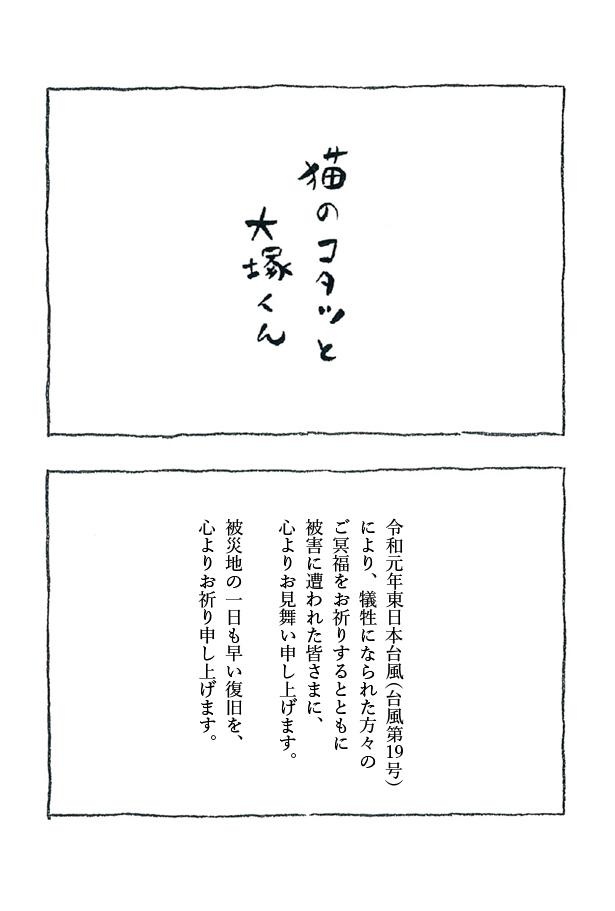 猫のコタツと
大塚くん
令和元年東日本台風(台風第19号)
により、犠牲になられた方々の
ご冥福をお祈りするとともに
被害に遭われた皆さまに、
心よりお見舞い申し上げます。
被災地の一日も早い復旧を、
心よりお祈り申し上げます。